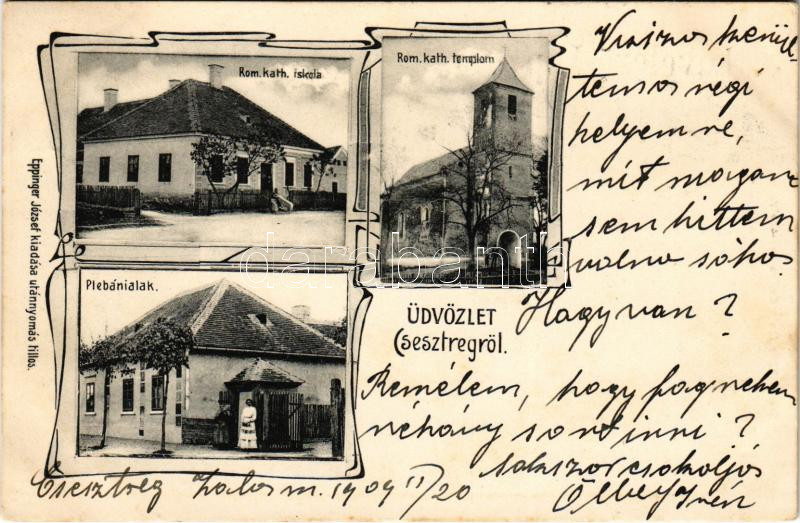 Rom. kath. iskola
Rom. kath. templom
Plebánialak.
ÜDVÖZLET
Csesztregről.
Eppinger József kiadása utánnyomás tilos.
darabanth
régi
helyemre,
mit magam
sem hittem
volna soha
Hogy van?
Remélem, hogy fog nekem
néhány sort irni?
sokszor csókolja
Csesztreg Zala m. 1909 II/20